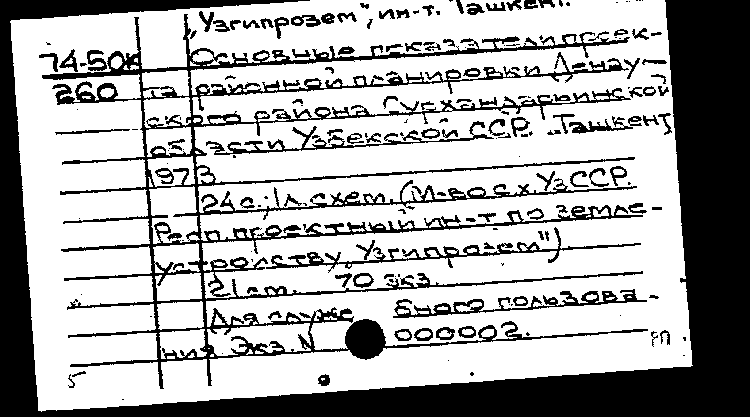 „Узгипрозем", ин-т. Ташкент.
74-50к Основные показатели проек-
260 та районной планировки Денау-
ского района Сурхандарьинской
области Узбекской ССР. Ташкент,
1973
24 с.; 1 л. схем. (М-во с.х. УзССР.
Респ. проектный ин-т по земле-
устройству „Узгипрозем")
21 см. 70 экз.
Для служебного пользова-
ния Экз. N 000002.
РП
5